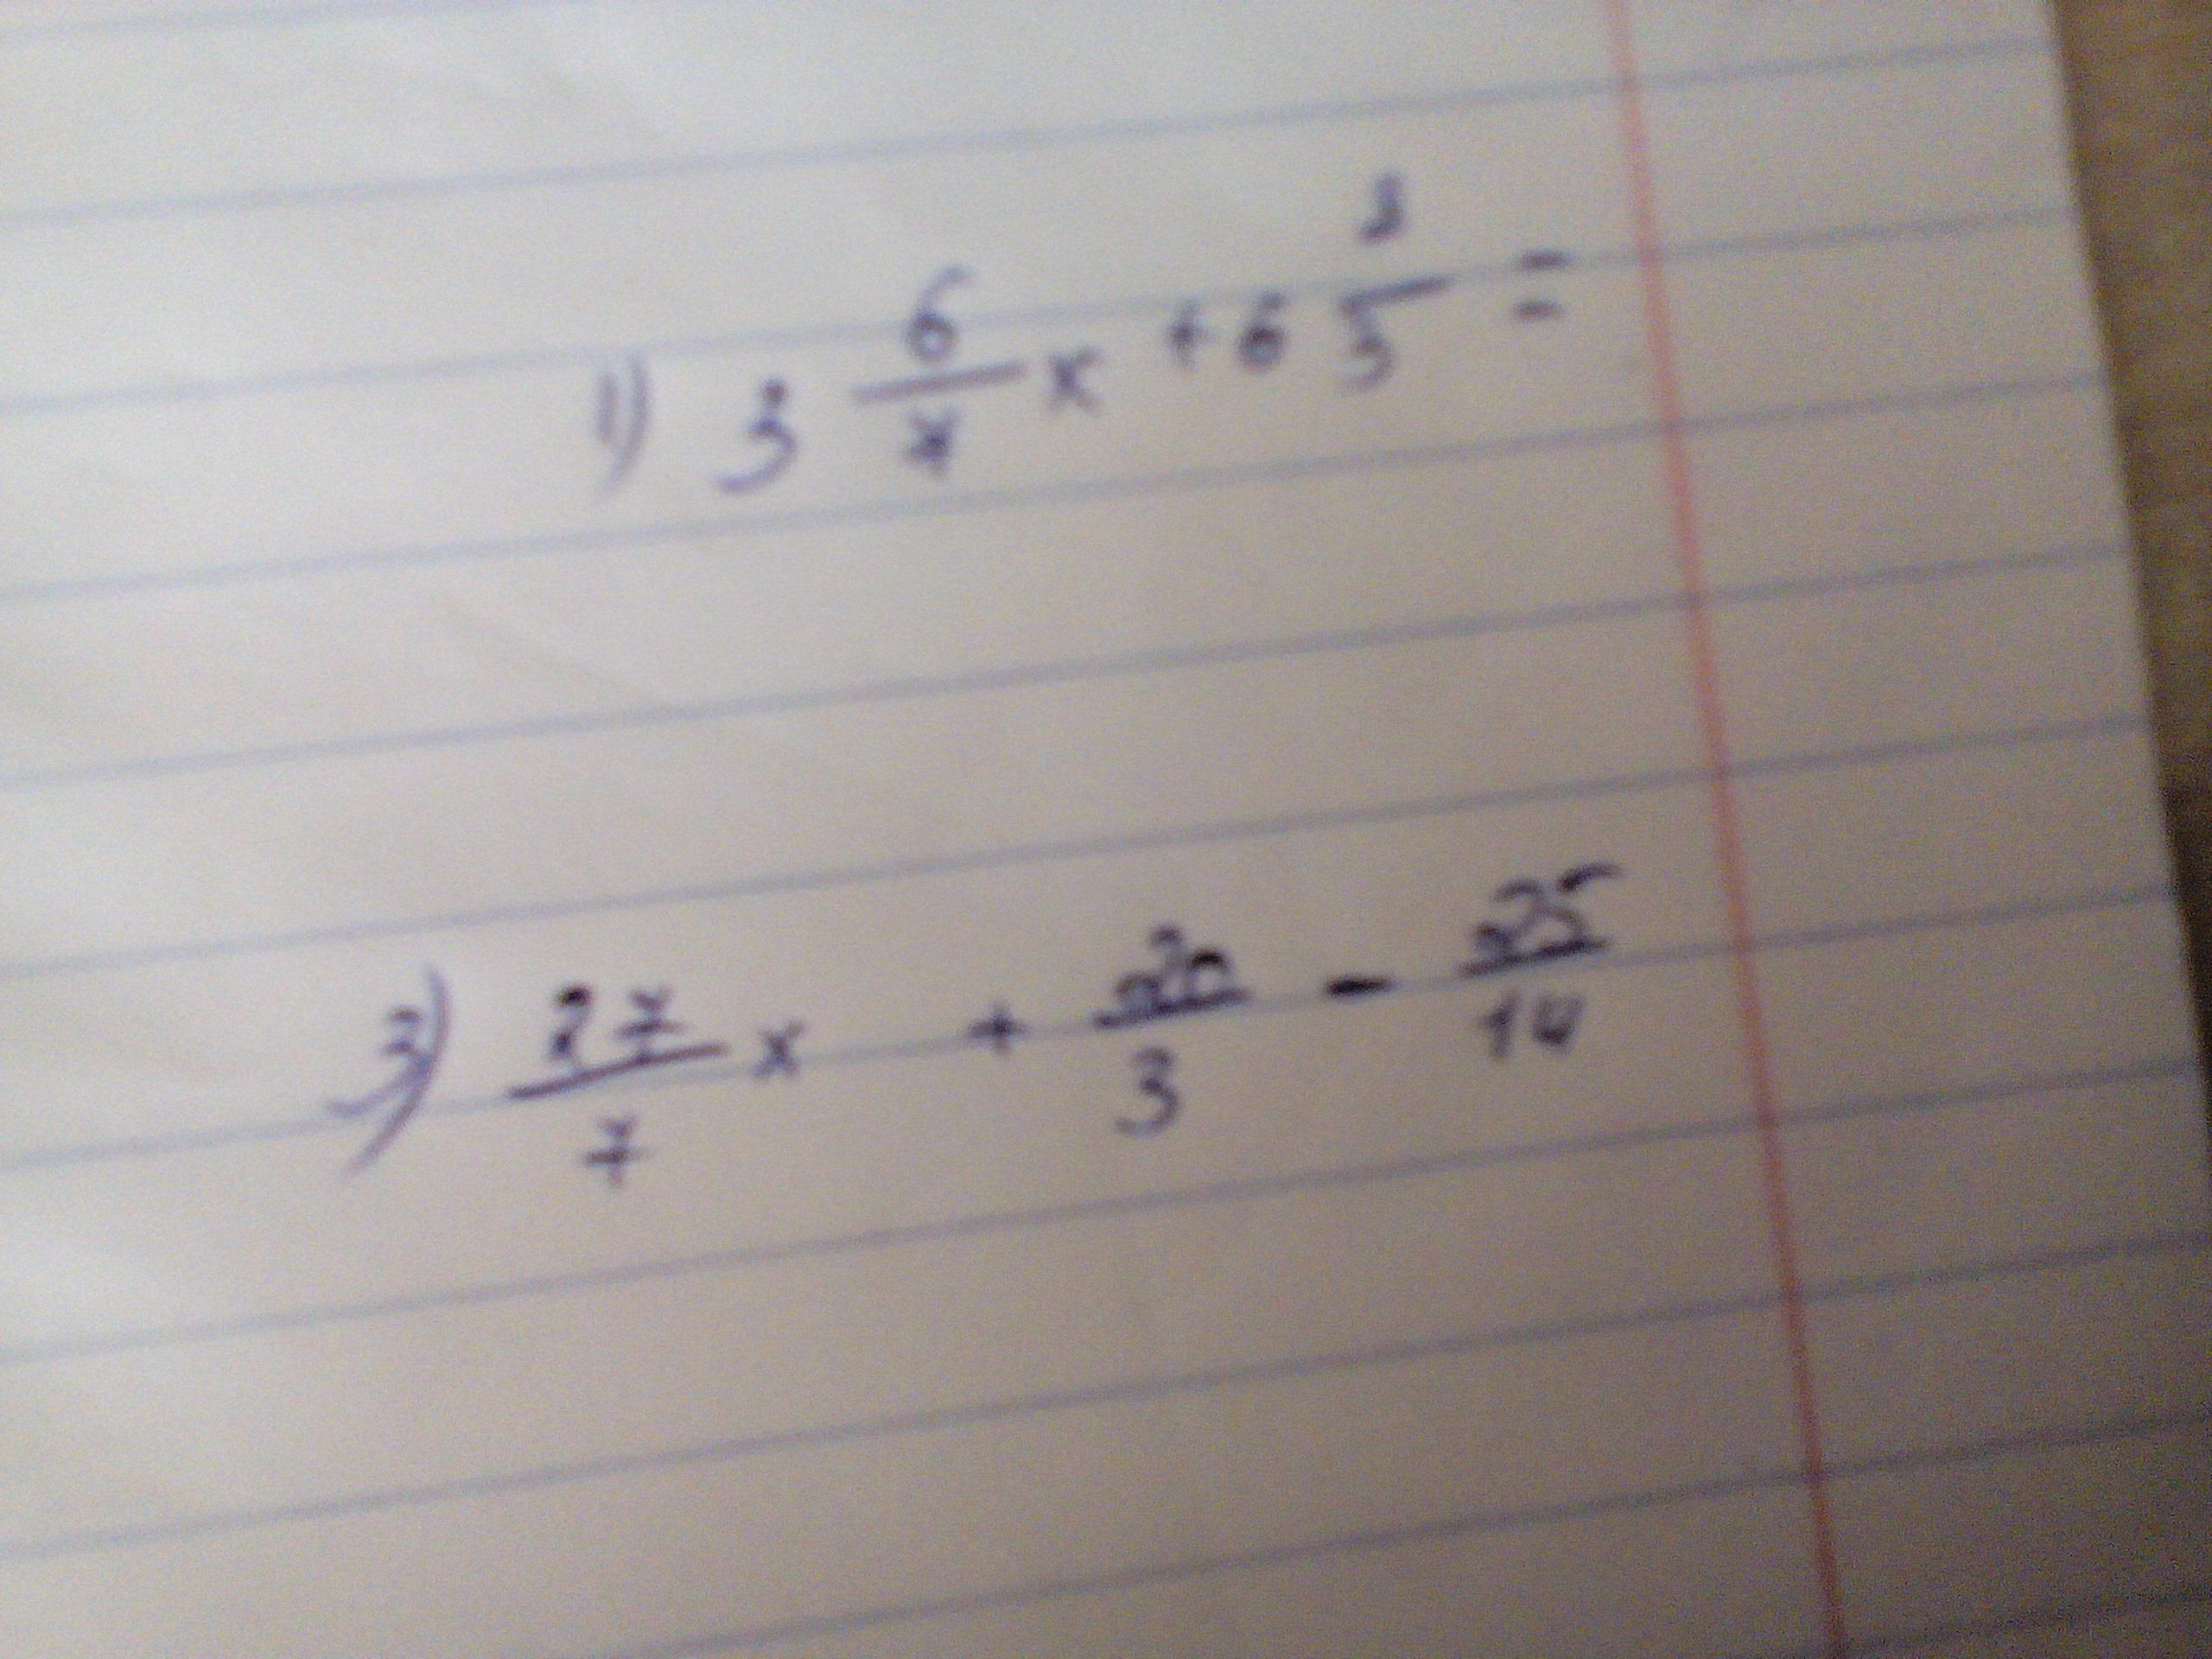 1) 3 6/7 x + 6 3/5 =
2) 27/7 x + 20/3 - 25/14